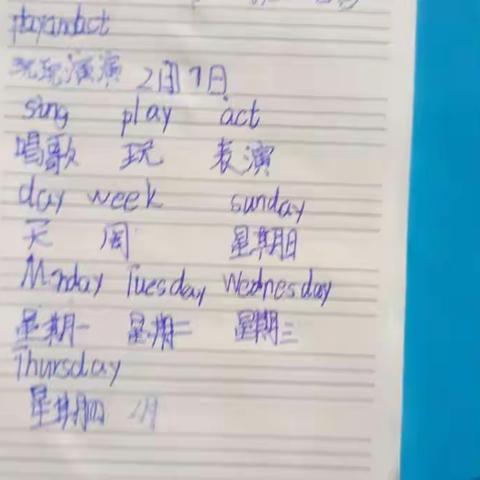 playandact
玩玩演演 2月7日
sing play act
唱歌 玩 表演
day week sunday
天 周 星期日
Monday Tuesday Wednesday
星期一 星期二 星期三
Thursday
星期四